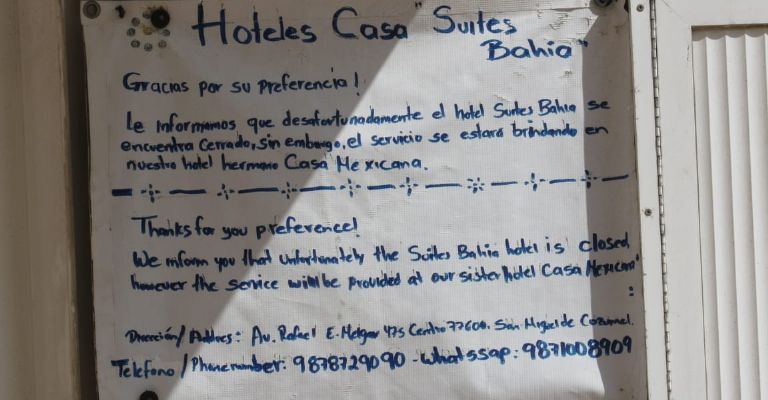 Hoteles Casa "Suites
Bahia"
Gracias por su preferencia!
Le Informamos que desafortunadamente el hotel Suites Bahia se
encuentra Cerrado, sin embargo, el servicio se estará brindando en
nuestro hotel hermano Casa Mexicana.
Thanks for you preference!
We inform you that unfortunately the Suites Bahia hotel is closed,
however the service will be provided at our sister hotel Casa Mexicana"
:
Dirección/Addres: Av. Rafael E. Melgar 475 Centro 77600. San Miguel de Cozumel.
Telefono /Phone number: 9878729090 - whatssap: 9871008909